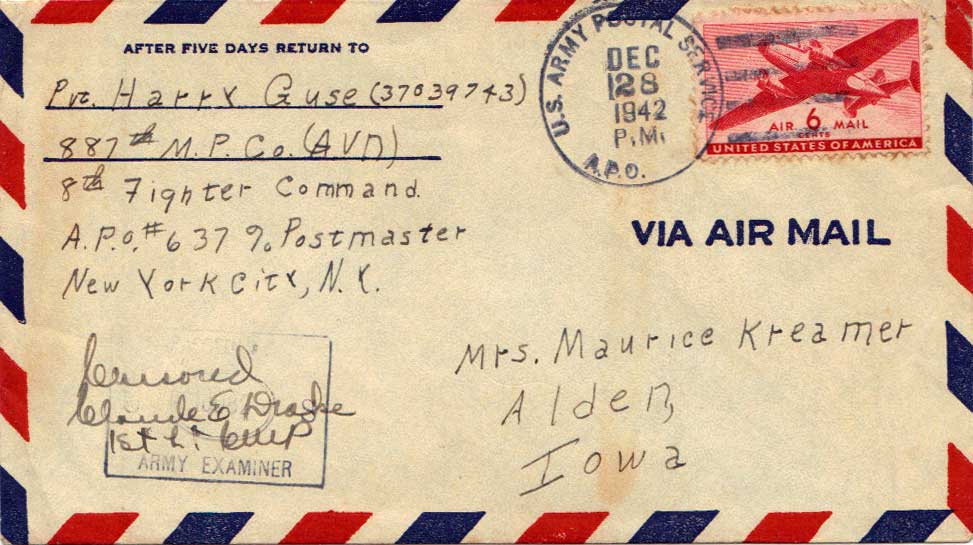 AFTER FIVE DAYS RETURN TO
Pvt. Harry Guse (37039743)
887th M.P. Co. (AVN)
8th Fighter Command.
A.P.O. #637 % Postmaster
New York City, N.Y.
U.S. ARMY POSTAL SERVICE
DEC
28
1942
P.M.
A.P.O.
AIR 6 MAIL
CENTS
UNITED STATES OF AMERICA
VIA AIR MAIL
Mrs. Maurice Kreamer
Alden,
Iowa
Censored
Claude E Drake
1st Lt. CMP
ARMY EXAMINER